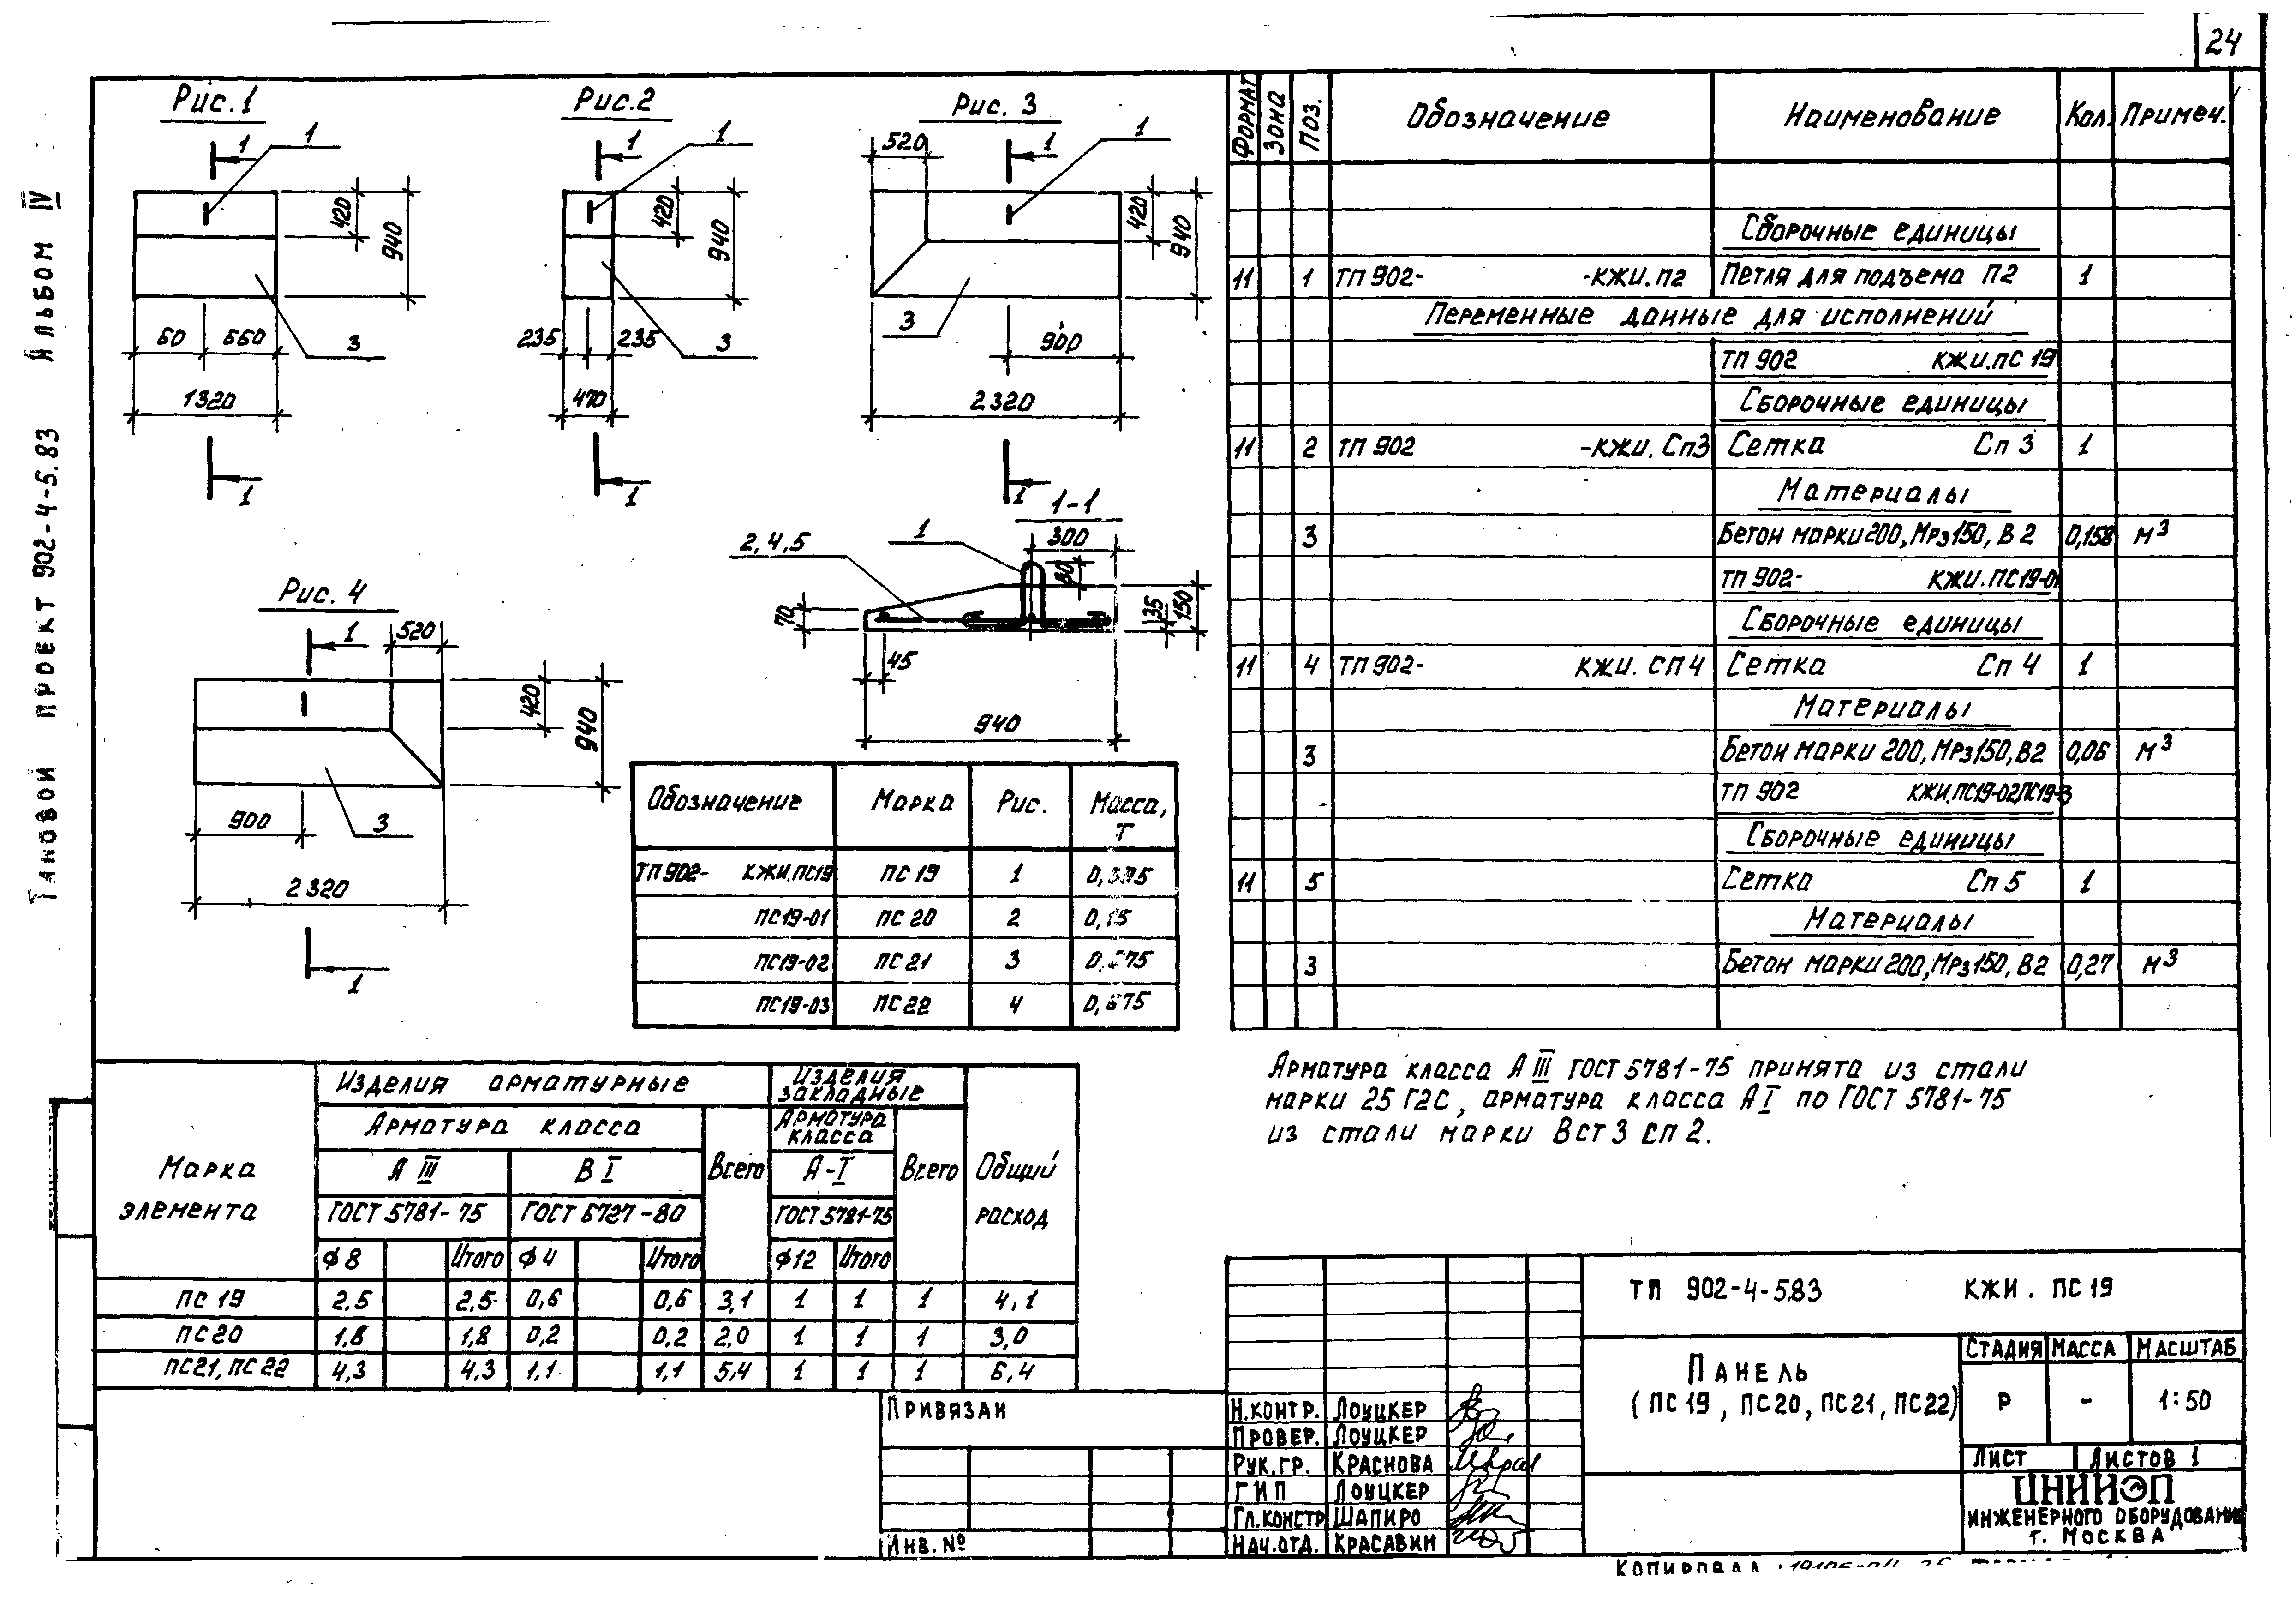 24
Типовой проект 902-4-5.83 Альбом IV
Рис.1
1
1
420
940
60
660
3
1320
1
Рис.2
1
1
420
940
235
235
3
470
1
Рис. 3
520
1
1
420
940
3
900
2320
1
1-1
2,4,5
1
300
80
70
35
150
45
940
Рис. 4
1
520
420
940
900
3
2320
1
Обозначение Марка Рис. Масса, Т
ТП902- КЖИ.ПС19 ПС 19 1
ПС19-01 ПС 20 2 0,15
ПС19-02 ПС 21 3
ПС19-03 ПС 22 4 0,675
Формат Зона Поз. Обозначение Наименование Кол. Примеч.
Сборочные единицы
11 1 ТП902- -КЖИ.П2 Петля для подъема П2 1
Переменные данные для исполнений
ТП 902 КЖИ.ПС 19
Сборочные единицы
11 2 ТП 902 -КЖИ. Сп3 Сетка Сп 3 1
Материалы
3 Бетон марки 200, Мрз150, В 2 0,158 м3
ТП 902- КЖИ.ПС19-01
Сборочные единицы
11 4 ТП902- КЖИ. СП 4 Сетка Сп 4 1
Материалы
3 Бетон марки 200, Мрз150, В2 0,06 м3
ТП 902 КЖИ.ПС19-02,ПС19-3
Сборочные единицы
11 5 Сетка Сп 5 1
Материалы
3 Бетон марки 200, Мрз150, В2 0,27 м3
Арматура класса А III ГОСТ 5781-75 принята из стали
марки 25 Г2С, арматура класса А I по ГОСТ 5781-75
из стали марки Вст 3 сп 2.
Марка элемента
Изделия арматурные
Изделия закладные
Общий расход
Арматура класса
Всего
Арматура класса
Всего
А III В I А-I
ГОСТ 5781-75 ГОСТ 6727-80 ГОСТ 5781-75
ф8 Итого ф4 Итого ф12 Итого
ПС 19 2,5 2,5 0,6 0,6 3,1 1 1 1 4,1
ПС20 1,8 1,8 0,2 0,2 2,0 1 1 1 3,0
ПС21, ПС 22 4,3 4,3 1,1 1,1 5,4 1 1 1 6,4
Привязан
Инв. №
ТП 902-4-5.83 КЖИ. ПС 19
Н.контр. Лоуцкер
Провер. Лоуцкер
Рук.гр. Краснова
ГИП Лоуцкер
Гл.констр Шапиро
Нач.отд. Красавин
Панель
(ПС 19, ПС20, ПС21, ПС22)
Стадия Масса Масштаб
Р - 1:50
Лист Листов 1
ЦНИИЭП
инженерного оборудования
г. Москва
Копировал